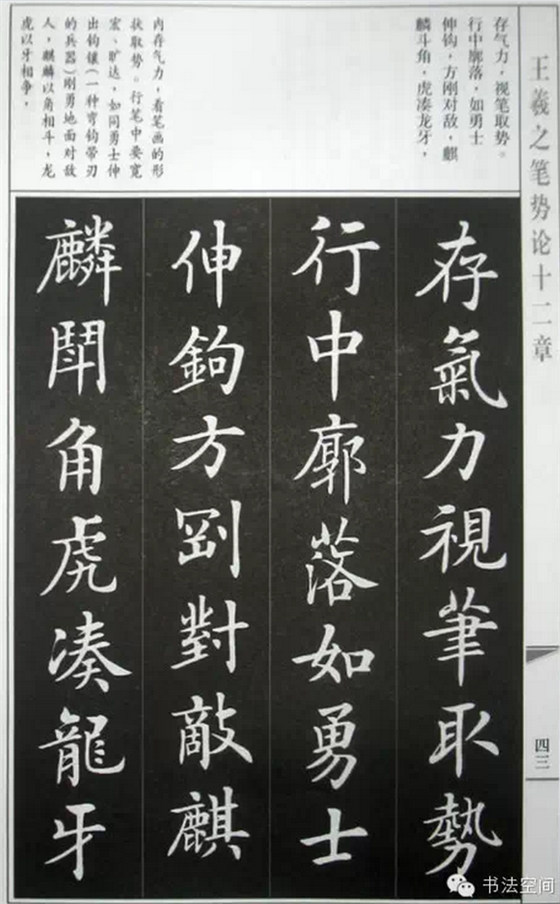 王羲之笔势论十二章
四三
存气力，视笔取势。
行中廓落，如勇士
伸钩，方刚对敌，麒
麟斗角，虎凑龙牙，
内存气力，看笔画的形
状取势。行笔中要宽
宏、旷达，如同勇士伸
出钩镶(一种弯钩带刃
的兵器)刚勇地面对敌
人，麒麟以角相斗，龙
虎以牙相争，
存氣力視筆取勢
行中廓落如勇士
伸鉤方剛對敵麒
麟鬥角虎凑龍牙
书法空间